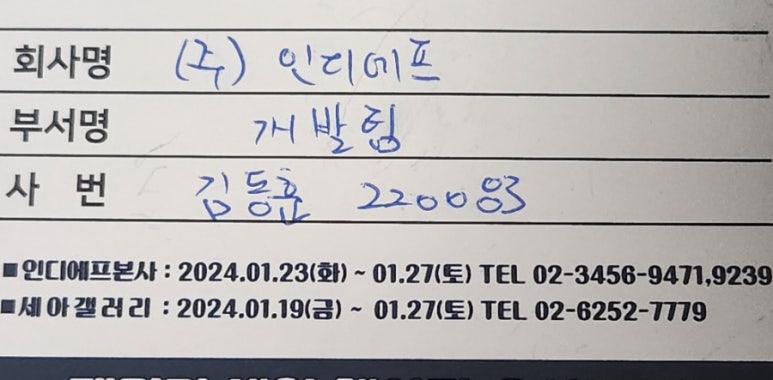 회사명 (주) 인디에프
부서명 개발팀
사 번 김동훈 2200083
■인디에프본사 : 2024.01.23(화) ~ 01.27(토) TEL 02-3456-9471,9239
■세아갤러리 : 2024.01.19(금) ~ 01.27(토) TEL 02-6252-7779